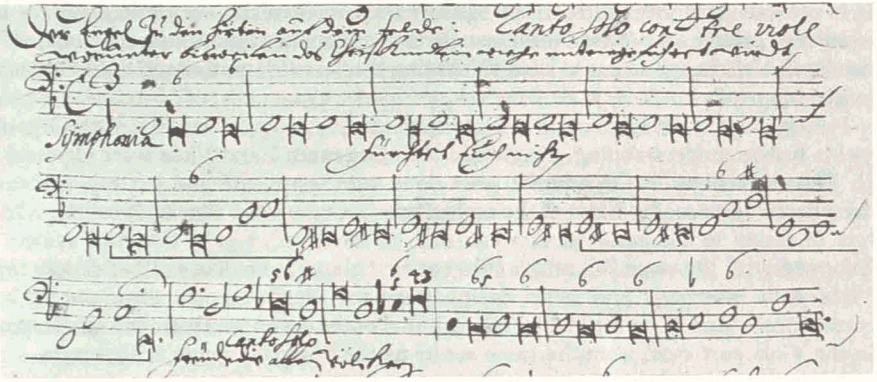 Der Engel zu den Hirten auff dem Felde: Canto solo con tre viole
worunter bisweilen des Christkindleins wiege mit eingeführet wirdt
Symphonia
6 6
Fürchtet Euch nicht
6 6
5 6 6 5 4 3 6 5 6 6 6 6 6
Canto solo
freude die allen